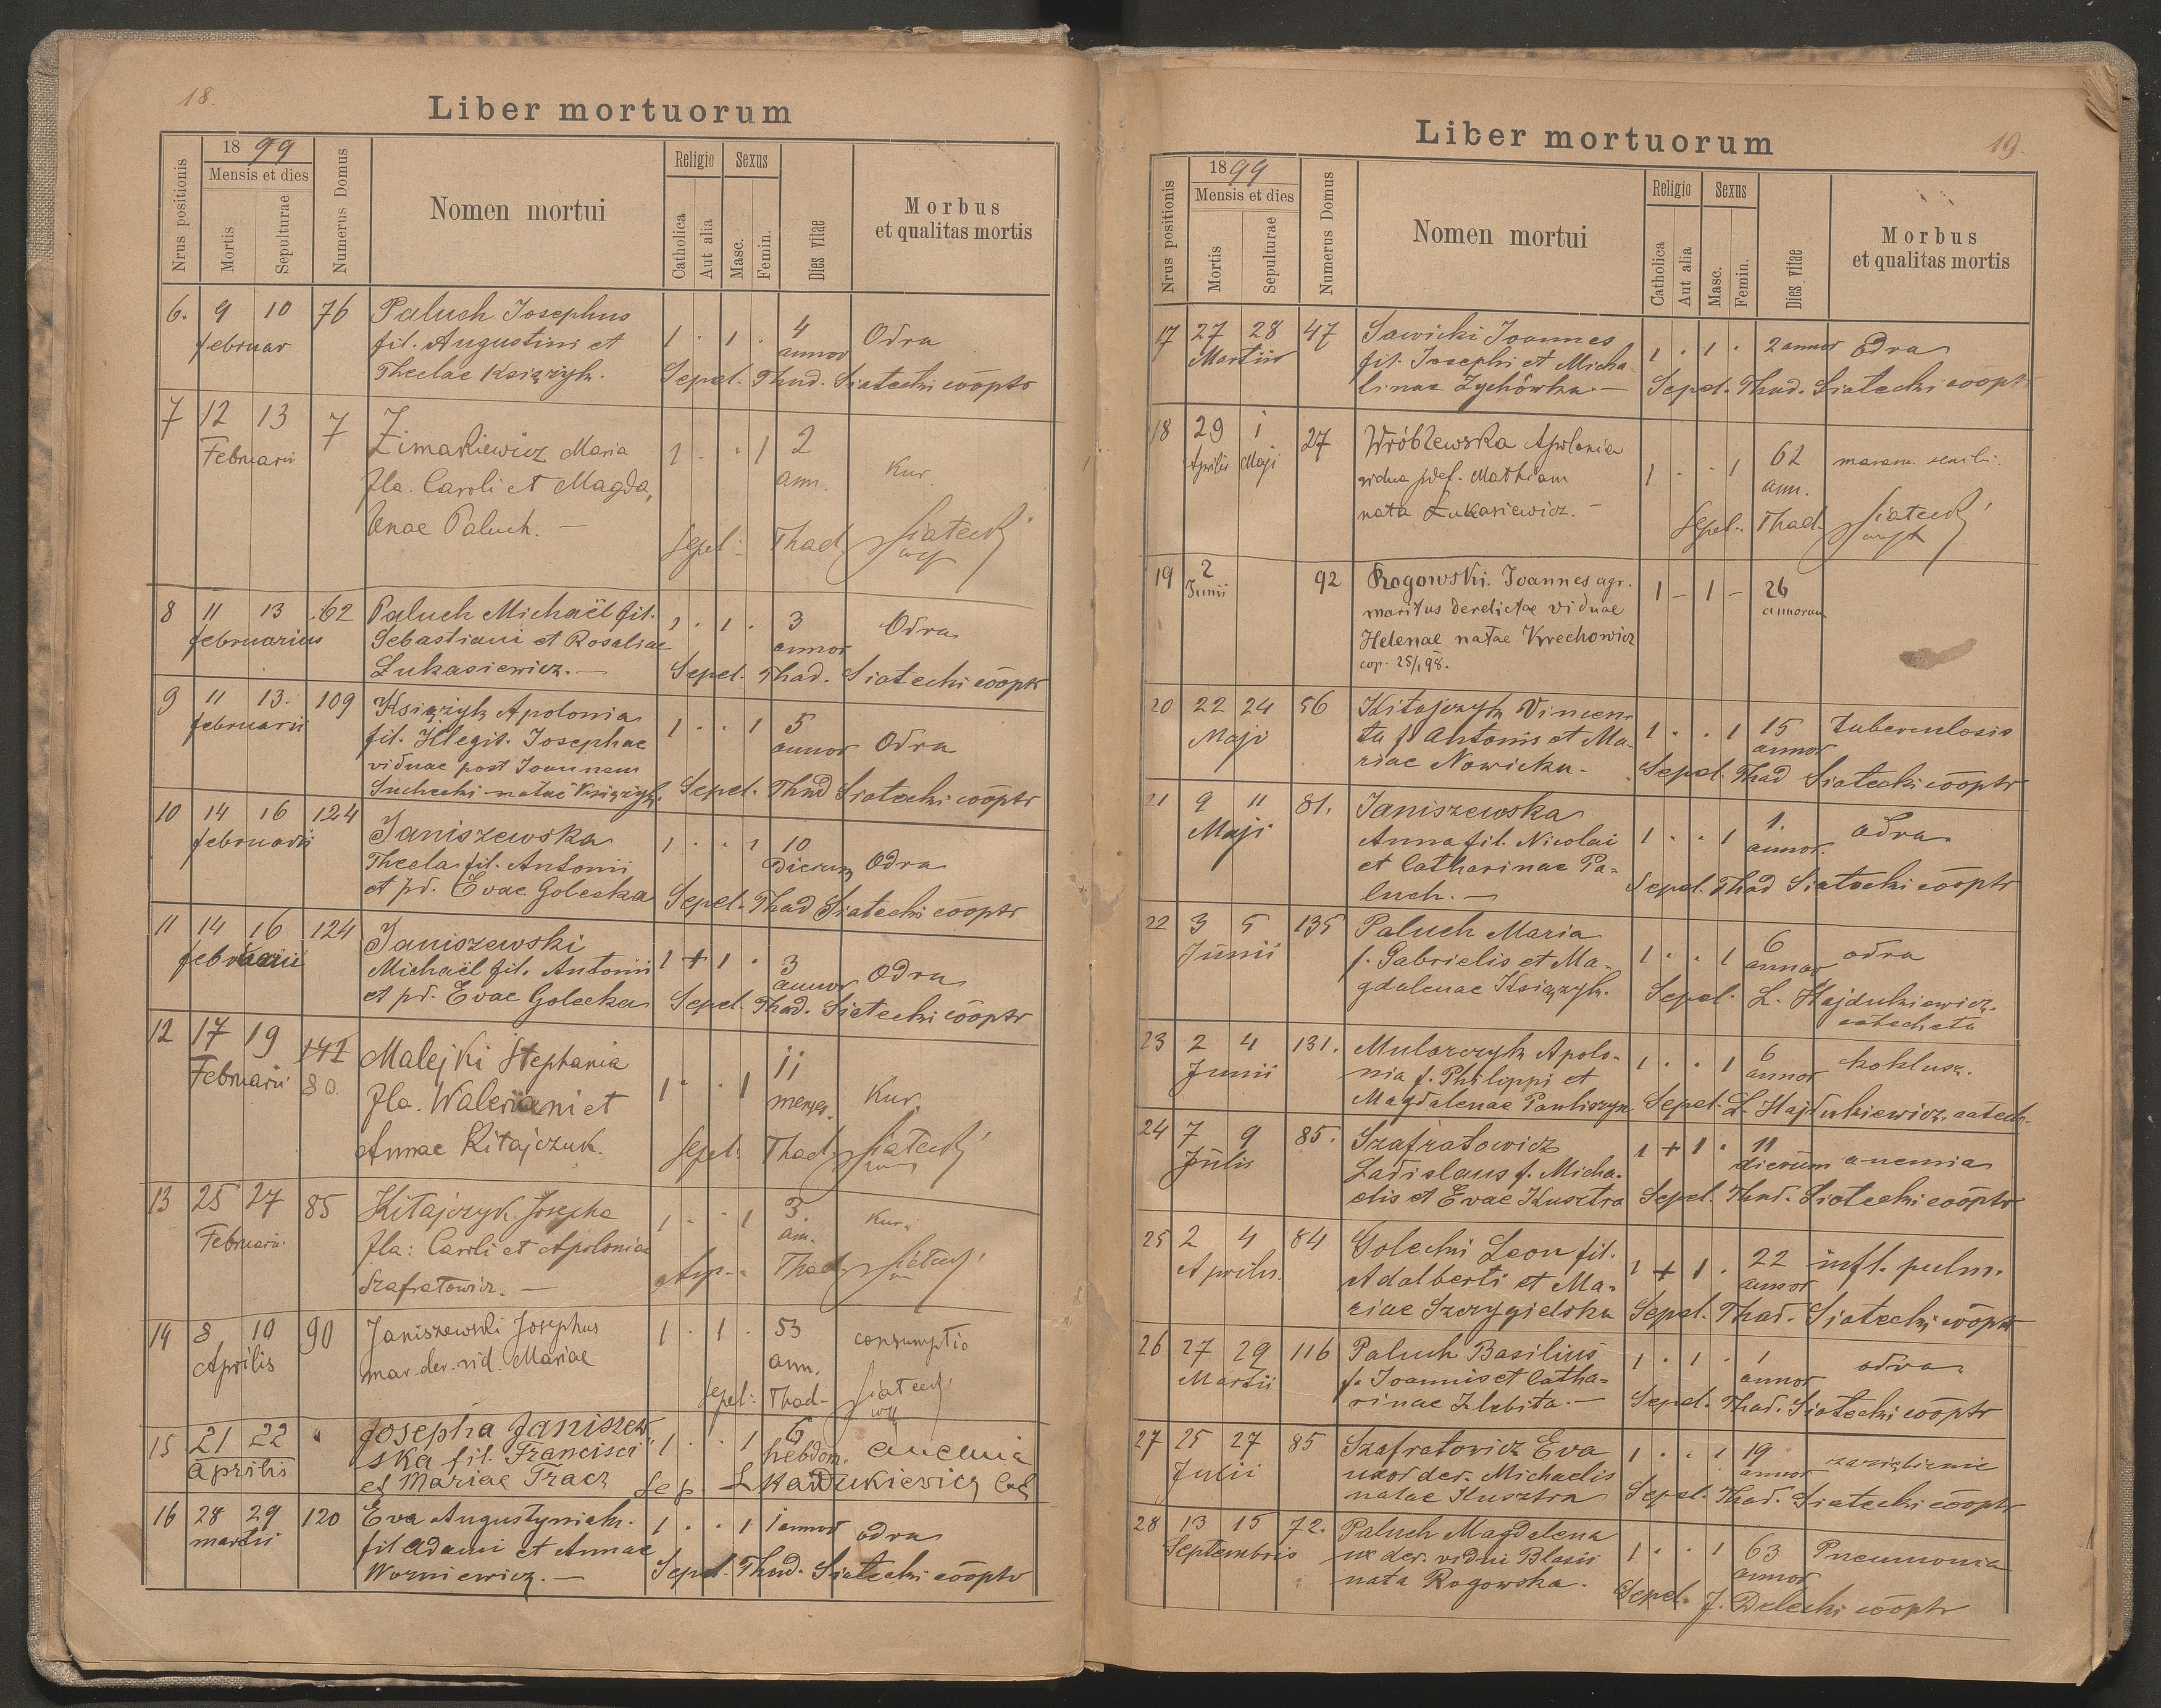 18.
Liber mortuorum
Nrus positionis
1899
Mensis et dies
Mortis
Sepulturae
Numerus Domus
Nomen mortui
Religio
Catholica
Aut alia
Sexus
Masc.
Femin.
Dies vitae
Morbus
et qualitas mortis
6. 9 10 76 Paluch Josephus
februar fil. Augustini et 1 . 1 . 4 annor Odra
Theclae Książyk. Sepel. Thad. Siatecki cooptr
7 12 13 7 Zimakiewicz Maria 1 . . 1 2
Februarii fla. Caroli et Magda, ann. Kur.
lenae Paluch. — Sepel: Thad. Siatecki
8 11 13 62 Paluch Michaël fil. 1 . 1 . 3 Odra
februarius Sebastiani et Rosaliae annor
Łukasiewicz. — Sepel. Thad. Siatecki cooptr
9 11 13. 109 Książyk Apolonia 1 . . 1 5
februarii fil. illegit. Josephae annor Odra
viduae post Joannem
Suchecki natae Książyk. Sepel. Thad Siatecki cooptr
10 14 16 124 Janiszewska 1 . . 1 10
februarii Thecla fil. Antonii dierum Odra
et pd. Evae Golecka Sepel. Thad Siatecki cooptr
11 14 16 124 Janiszewski
februarii Michaël fil. Antonii 1 + 1 . 3 annor Odra
et pd. Evae Golecka Sepel. Thad. Siatecki cooptr
12 17 19 141 Malejki Stephania 11
Februarii 80. fla. Waleriani et 1 . . 1 menses. Kur.
Annae Kitajczuk. Sepel: Thad. Siatecki
13 25 27 85 Kitajczyk Josepha 1 . . 1 3
Februarii fla: Caroli et Apoloniae ann. Kur.
Szafratowicz. — Thad. Siatecki
14 8 10 90 Janiszewski Josephus 1 . 1 . 53 consumptio
Aprilis mar. der. vid. Mariae ann.
Sepel: Thad. Siatecki
15 21 22 " Josepha Janiszew 6
Aprilis ska fil. Francisci 1 . . 1 hebdom. anemia
et Mariae Tracz Sep. L Hajdukiewicz Cat
16 28 29 120 Eva Augustyniak. 1 . . 1 1 annor odra
martii fil Adami et Annae
Worniewicz. — Sepel. Thad. Siatecki cooptr
19.
Liber mortuorum
Nrus positionis
1899
Mensis et dies
Mortis
Sepulturae
Numerus Domus
Nomen mortui
Religio
Catholica
Aut alia
Sexus
Masc.
Femin.
Dies vitae
Morbus
et qualitas mortis
17 27 28 47 Sawicki Joannes
Martii fil. Josephi et Micha- 1 . 1 . 2 annor odra
linae Zychówka. — Sepel. Thad. Siatecki coopt
18 29 1 27 Wróblewska Apolonia 62 maram. senili
Aprilis Maji vidua p. def. Mathiam 1 . . 1 ann.
nata Łukasiewicz. — Sepel. Thad. Siatecki
19 2 92 Rogowski. Joannes agr. 1 — 1 — 26
Junii maritus derelictae viduae annorum
Helenae natae Krechowicz
cop. 25/1 98.
20 22 24 56 Kitajczyk Vincen- 1 . . 1 15 tuberculosis
Maji ta f. Antonii et Ma- annor
riae Nowicka — Sepel. Thad Siatecki cooptr
21 9 11 81. Janiszewska 1.
Maji Anna fil. Nicolai 1 . . 1 annor. odra.
et Catharinae Pa-
luch. — Sepel. Thad Siatecki cooptr
22 3 5 135 Paluch Maria 6
Junii f. Gabrielis et Ma- 1 . . 1 annor odra
gdalenae Książyk. Sepel. L. Hajdukiewicz.
catecheta
23 2 4 131. Mularczyk Apolo- 6
Junii nia f. Philippi et 1 . . 1 annor koklusz.
Magdalenae Pauliszyn Sepel. L. Hajdukiewicz. catech.
24 7 9 85. Szafratowicz 1 + 1 . 11
Julii Ladislaus f. Micha- dierum anemia
elis et Evae Kusztra Sepel. Thad. Siatecki cooptr
25 2 4 84 Golecki Leon fil. 22 infl. pulm.
Aprilis. Adalberti et Ma- 1 + 1 . annor
riae Szczygielska Sepel. Thad. Siatecki cooptr
26 27 29 116 Paluch Basilius 1 . 1 . 1 odra
Martii f. Joannis et Catha- annor
rinae Zlebita. — Sepel. Thad. Siatecki cooptr
27 25 27 85 Szafratovicz Eva 1 . . 1 19
Julii uxor der. Michaelis annor zaziębienie
natae Kusztra Sepel. Thad. Siatecki cooptr
28 13 15 72. Paluch Magdalena
Septembris ux der. vidui Blasii 1 . . 1 63 Pneumonia
nata Rogowska. annor
Sepel. J. Delecki cooptr